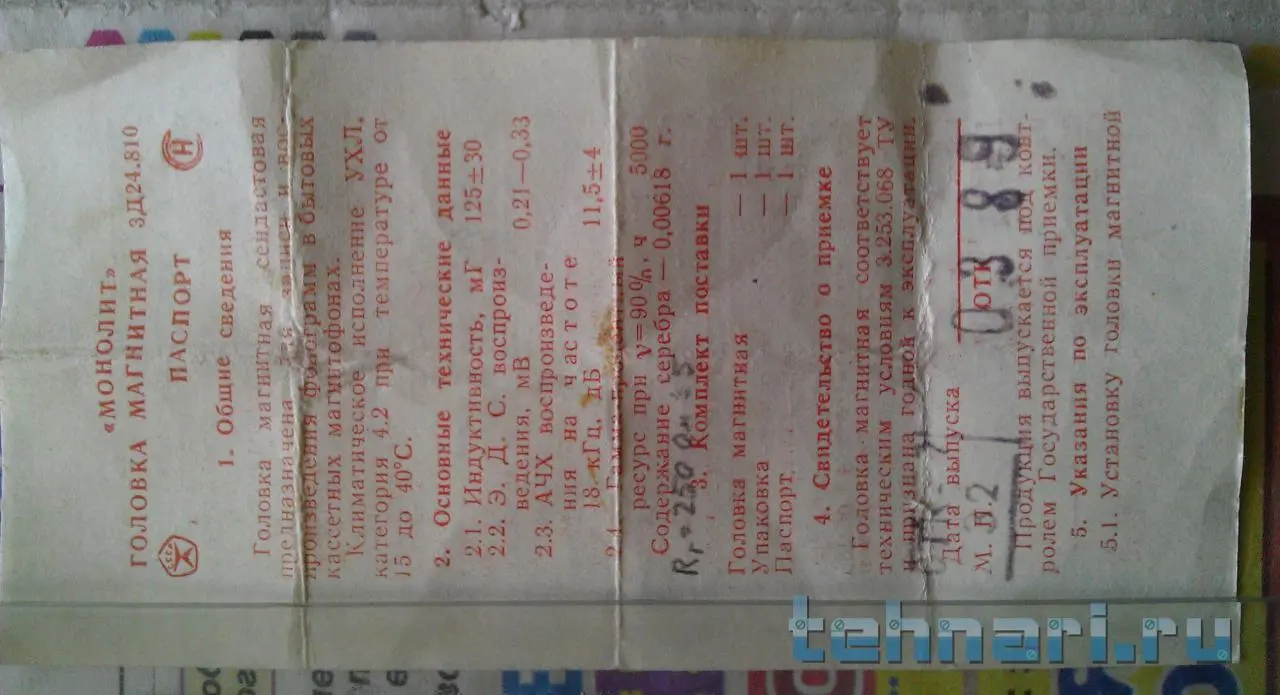 «МОНОЛИТ»
ГОЛОВКА МАГНИТНАЯ 3Д24.810
ПАСПОРТ
1. Общие сведения
Головка магнитная сендастовая
предназначена для записи и вос-
произведения фонограмм в бытовых
кассетных магнитофонах.
Климатическое исполнение УХЛ,
категория 4.2 при температуре от
15 до 40°С.
2. Основные технические данные
2.1. Индуктивность, мГ 125±30
2.2. Э. Д. С. воспроиз-
ведения, мВ 0,21—0,33
2.3. АЧХ воспроизведе-
ния на частоте
18 кГц, дБ 11,5±4
2.4. Гамма-процентный
ресурс при γ=90%, ч 5000
Содержание серебра — 0,00618 г.
3. Комплект поставки
Головка магнитная — 1 шт.
Упаковка — 1 шт.
Паспорт — 1 шт.
4. Свидетельство о приемке
Головка магнитная соответствует
техническим условиям 3.253.068 ТУ
и признана годной к эксплуатации.
Дата выпуска
ОТК
03 89
М. П.
Продукция выпускается под конт-
ролем Государственной приемки.
5. Указания по эксплуатации
5.1. Установку головки магнитной
tehnari.ru